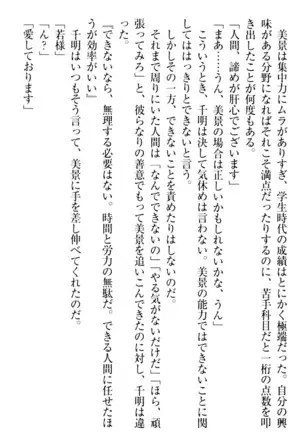 美景は集中力にムラがありすぎ、学生時代の成績はとにかく極端だった。自分の興
味がある分野になればそれこそ満点だったりするのに、苦手科目だと一桁の点数を叩
き出したことが何度もある。
「人間、諦めが肝心でございます」
「まあ……うん、美景の場合は正しいかもしれないかな、うん」
こういうとき、千明は決して気休めは言わない。美景の能力ではできないことに関
してははっきりとできないと言う。
しかしその一方、できないことを責めたりはしないのだ。
それまで周りにいた人間は「なんでできないの」「やる気がないだけだ」「ほら、頑
張ってみろ」と、彼らなりの善意でもって美景を追いこんできたのに対し、千明は違
った。
「できないなら、無理する必要はない。時間と労力の無駄だ。できる人間に任せたほ
うが効率がいい」
千明はいつもそう言って、美景に手を差し伸べてくれたのだ。
「若様」
「ん？」
「愛しております」